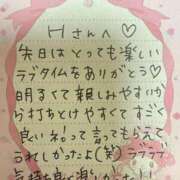 Hさんへ♡
先日はとっても楽しい
ラブタイムをありがとう♡
明るくて親しみやすいか
ら打ちとけやすくてすごく
良いネ!って言ってもらえて
うれしかったよ(笑)ラブラブ
気持ち良い